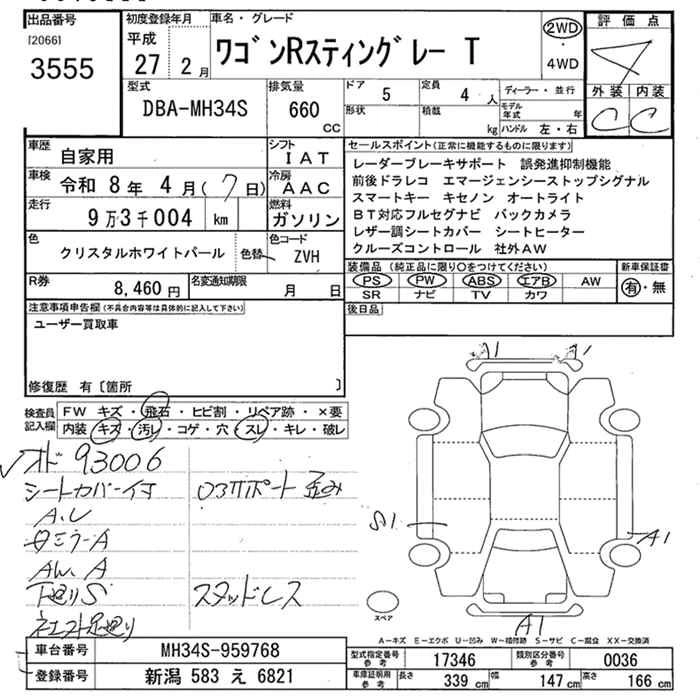 出品番号 初度登録年月 車名・グレード 評価点
[2066]
3555
平成 27 2月
ワゴンRスティングレー T
2WD
・
4WD
外装 内装
C C
型式 排気量 ドア 5 定員 4人 ディーラー・並行
DBA-MH34S 660 cc
形状 積載 kg モデル年式 年
ハンドル 左・右
車歴 自家用 シフト IAT
車検 令和 8年 4月(7日) 冷房 AAC
走行 9万3千004 km 燃料 ガソリン
色 クリスタルホワイトパール 色替 色コード ZVH
R券 8,460円 名変通知期限 月 日
セールスポイント(正常に機能するものに限ります)
レーダーブレーキサポート 誤発進抑制機能
前後ドラレコ エマージェンシーストップシグナル
スマートキー キセノン オートライト
BT対応フルセグナビ バックカメラ
レザー調シートカバー シートヒーター
クルーズコントロール 社外AW
装備品(純正品に限り○をつけてください) 新車保証書
PS PW ABS エアB AW 有・無
SR ナビ TV カワ
後日品
注意事項申告欄(不具合内容等は具体的に記入して下さい)
ユーザー買取車
修復歴 有〔箇所 〕
検査員記入欄
FW キズ・飛石・ヒビ割・リペア跡・×要
内装 キズ・汚レ・コゲ・穴・スレ・キレ・破レ
93006
シートカバー付
A.U
AW.A
下廻りS
スタッドレス
A1
S1
A1
A1
スペア
A-キズ E-エクボ U-凹み W-補修跡 S-サビ C-腐食 XX-交換済
車台番号 MH34S-959768
登録番号 新潟 583 え 6821
型式指定番号 参考 17346 類別区分番号 参考 0036
車庫証明用 参考 長さ 339 cm 幅 147 cm 高さ 166 cm